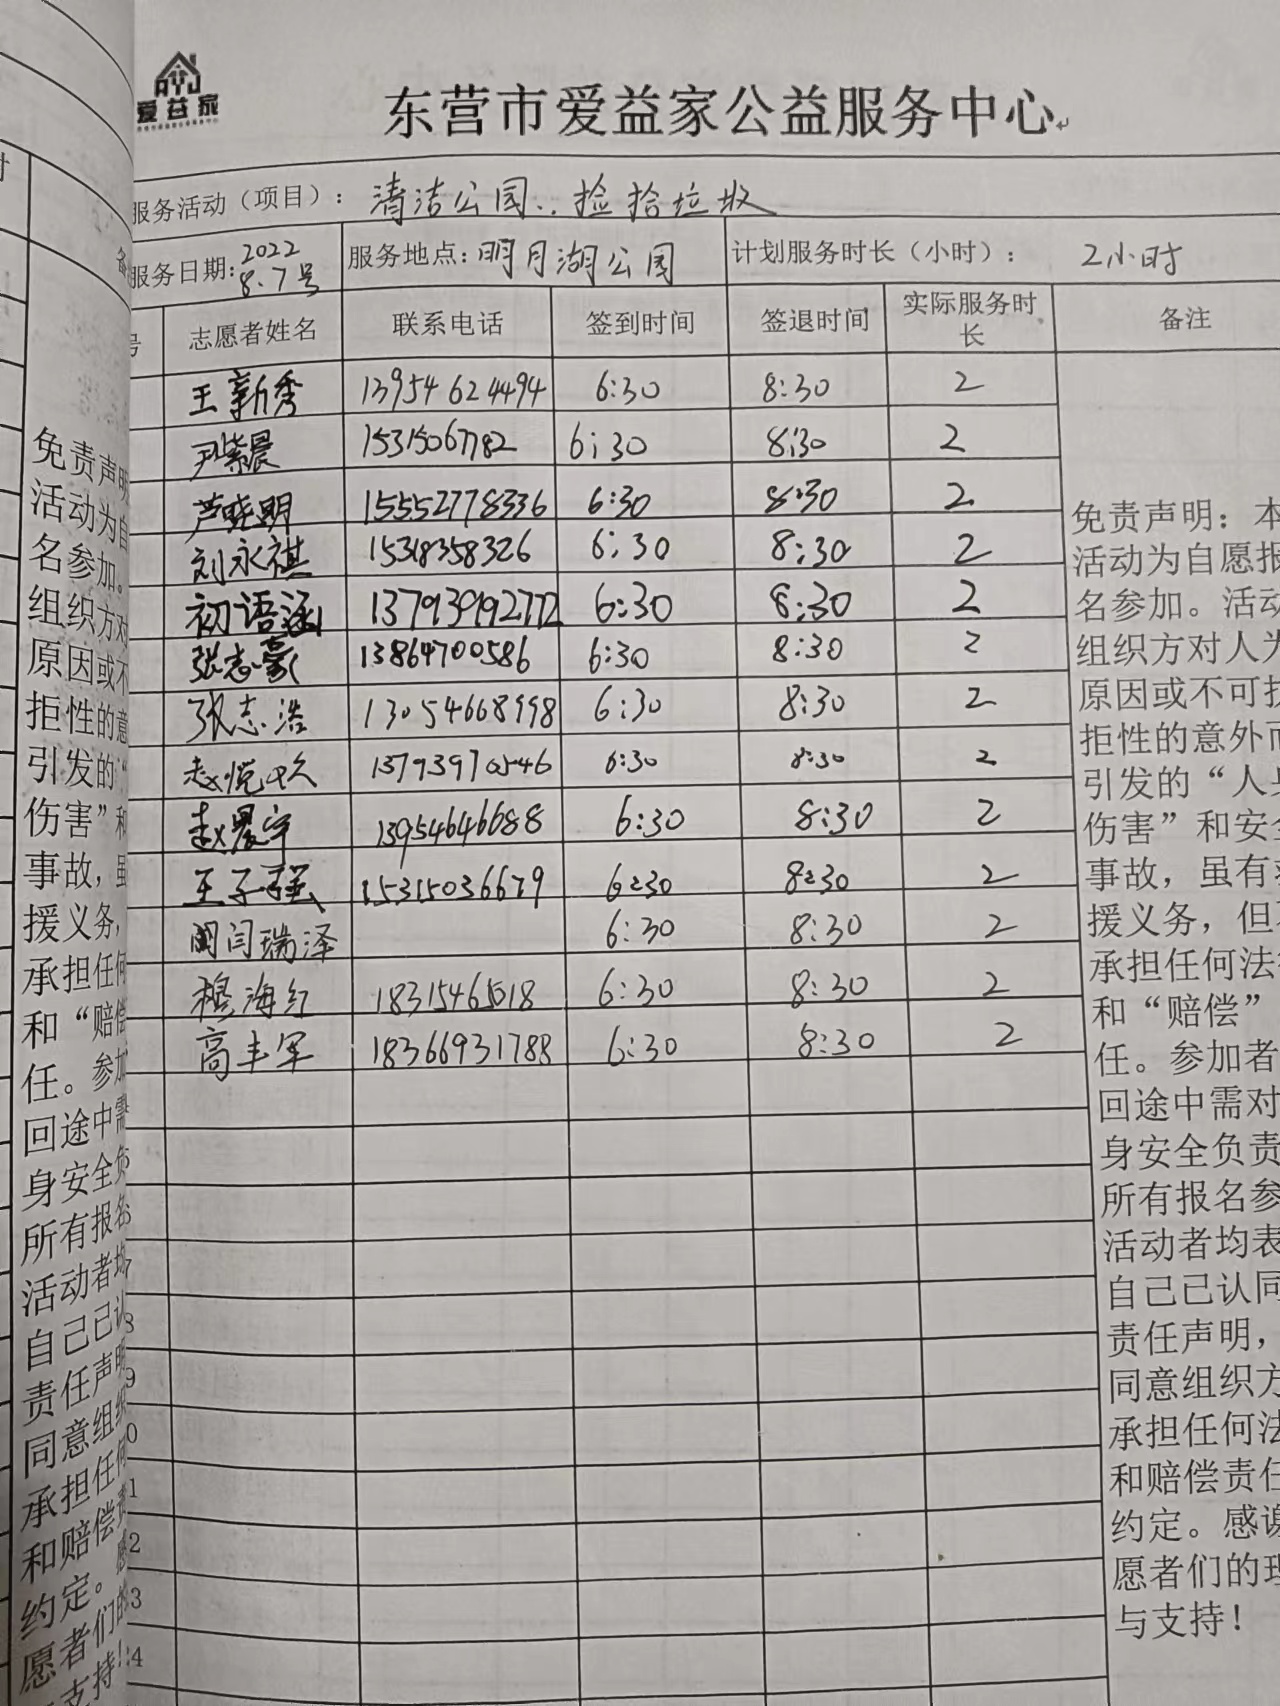 爱益家
东营市爱益家公益服务中心
服务活动（项目）：清洁公园..捡拾垃圾
服务日期：2022 8.7号 服务地点：明月湖公园 计划服务时长（小时）： 2小时
号 志愿者姓名 联系电话 签到时间 签退时间 实际服务时长 备注
王新秀 13954624494 6:30 8:30 2
尹紫晨 15315067782 6:30 8:30 2
芦晓明 15552778336 6:30 8:30 2
刘永祺 15318358326 6:30 8:30 2
初语涵 13793919272 6:30 8:30 2
张志豪 13864700586 6:30 8:30 2
张志浩 13054668998 6:30 8:30 2
赵悦 13793970546 6:30 8:30 2
赵晨宇 13954646688 6:30 8:30 2
王子强 15315036679 6:30 8:30 2
闫瑞泽 6:30 8:30 2
穆海红 6:30 8:30 2
高丰军 18366931788 6:30 8:30 2
免责声明：本
活动为自愿报
名参加。活动
组织方对人为
原因或不可抗
拒性的意外而
引发的“人身
伤害”和安全
事故，虽有救
援义务，但不
承担任何法律
和“赔偿”
任。参加者
回途中需对
身安全负责
所有报名参
活动者均表
自己已认同
责任声明，
同意组织方
承担任何法
和赔偿责任
约定。感谢
愿者们的理
与支持！
免责声明
活动为自
名参加。
组织方对
原因或不
拒性的意
引发的“
伤害”和
事故，虽
援义务，
承担任何
和“赔偿
任。参加
回途中需
身安全负
所有报名
活动者均
自己已认
责任声明
同意组织
承担任何
和赔偿责
约定。感
愿者们的
支持！